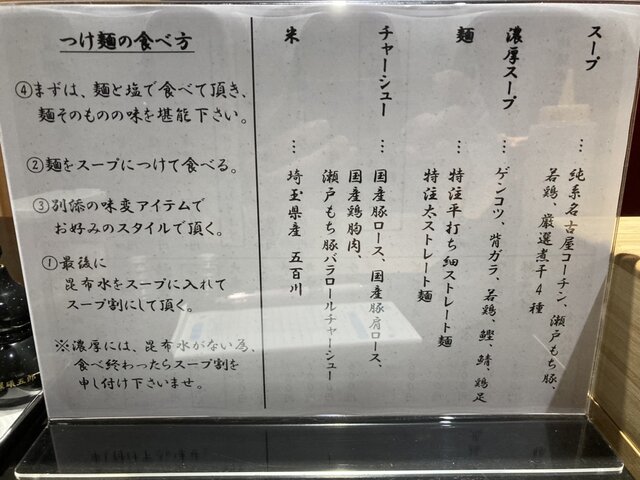 つけ麺の食べ方
④まずは、麺と塩で食べて頂き、
麺そのものの味を堪能下さい。
②麺をスープにつけて食べる。
③別添の味変アイテムで
お好みのスタイルで頂く。
①最後に
昆布水をスープに入れて
スープ割にして頂く。
※濃厚には、昆布水がない為、
食べ終わったらスープ割を
申し付け下さいませ。
スープ … 純系名古屋コーチン、瀬戸もち豚、
若鶏、厳選煮干4種
濃厚スープ … ゲンコツ、背ガラ、若鶏、鰹、鯖、鶏足
麺 … 特注平打ち細ストレート麺
特注太ストレート麺
チャーシュー … 国産豚ロース、国産豚肩ロース、
国産鶏胸肉、
瀬戸もち豚バラロールチャーシュー
米 … 埼玉県産 五百川